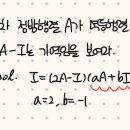 정방행렬 A가 멱등행렬
A-I는 가역임을 보여라.
sol. I=(2A-I)(aA+bI
a=2, b=-1.